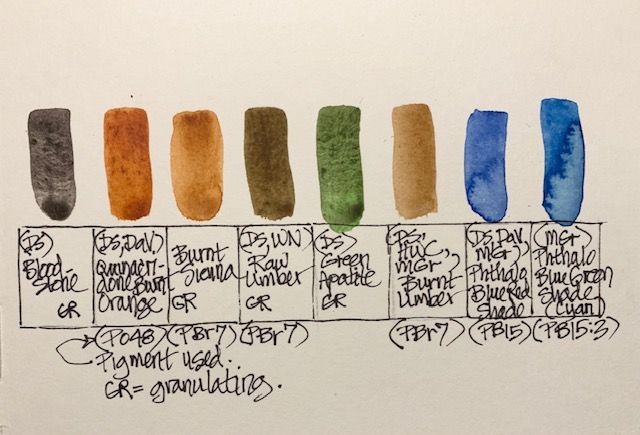 (DS)
Blood-
Stone
GR
(DS, DaV)
Quinacri-
done Burnt
Orange
Burnt
Sienna
GR
(DS, WN)
Raw
Umber
GR
(DS)
Green
Apatite
GR
(DS,
HWC,
MGr)
Burnt
Umber
(DS, DaV,
MGr)
Phthalo
Blue Red
Shade
(MGr)
Phthalo
Blue Green
Shade
(Cyan)
(PO48) (PBr7) (PBr7) (PBr7) (PB15) (PB15:3)
Pigment used.
GR = granulating.